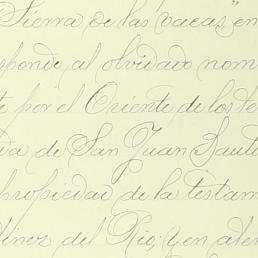 Sierra de las vacas," en
sponde al olvidado nom
te por el Oriente de los te
da de San Juan Bauti
propiedad de la testam
tinez del Rio; y en aten